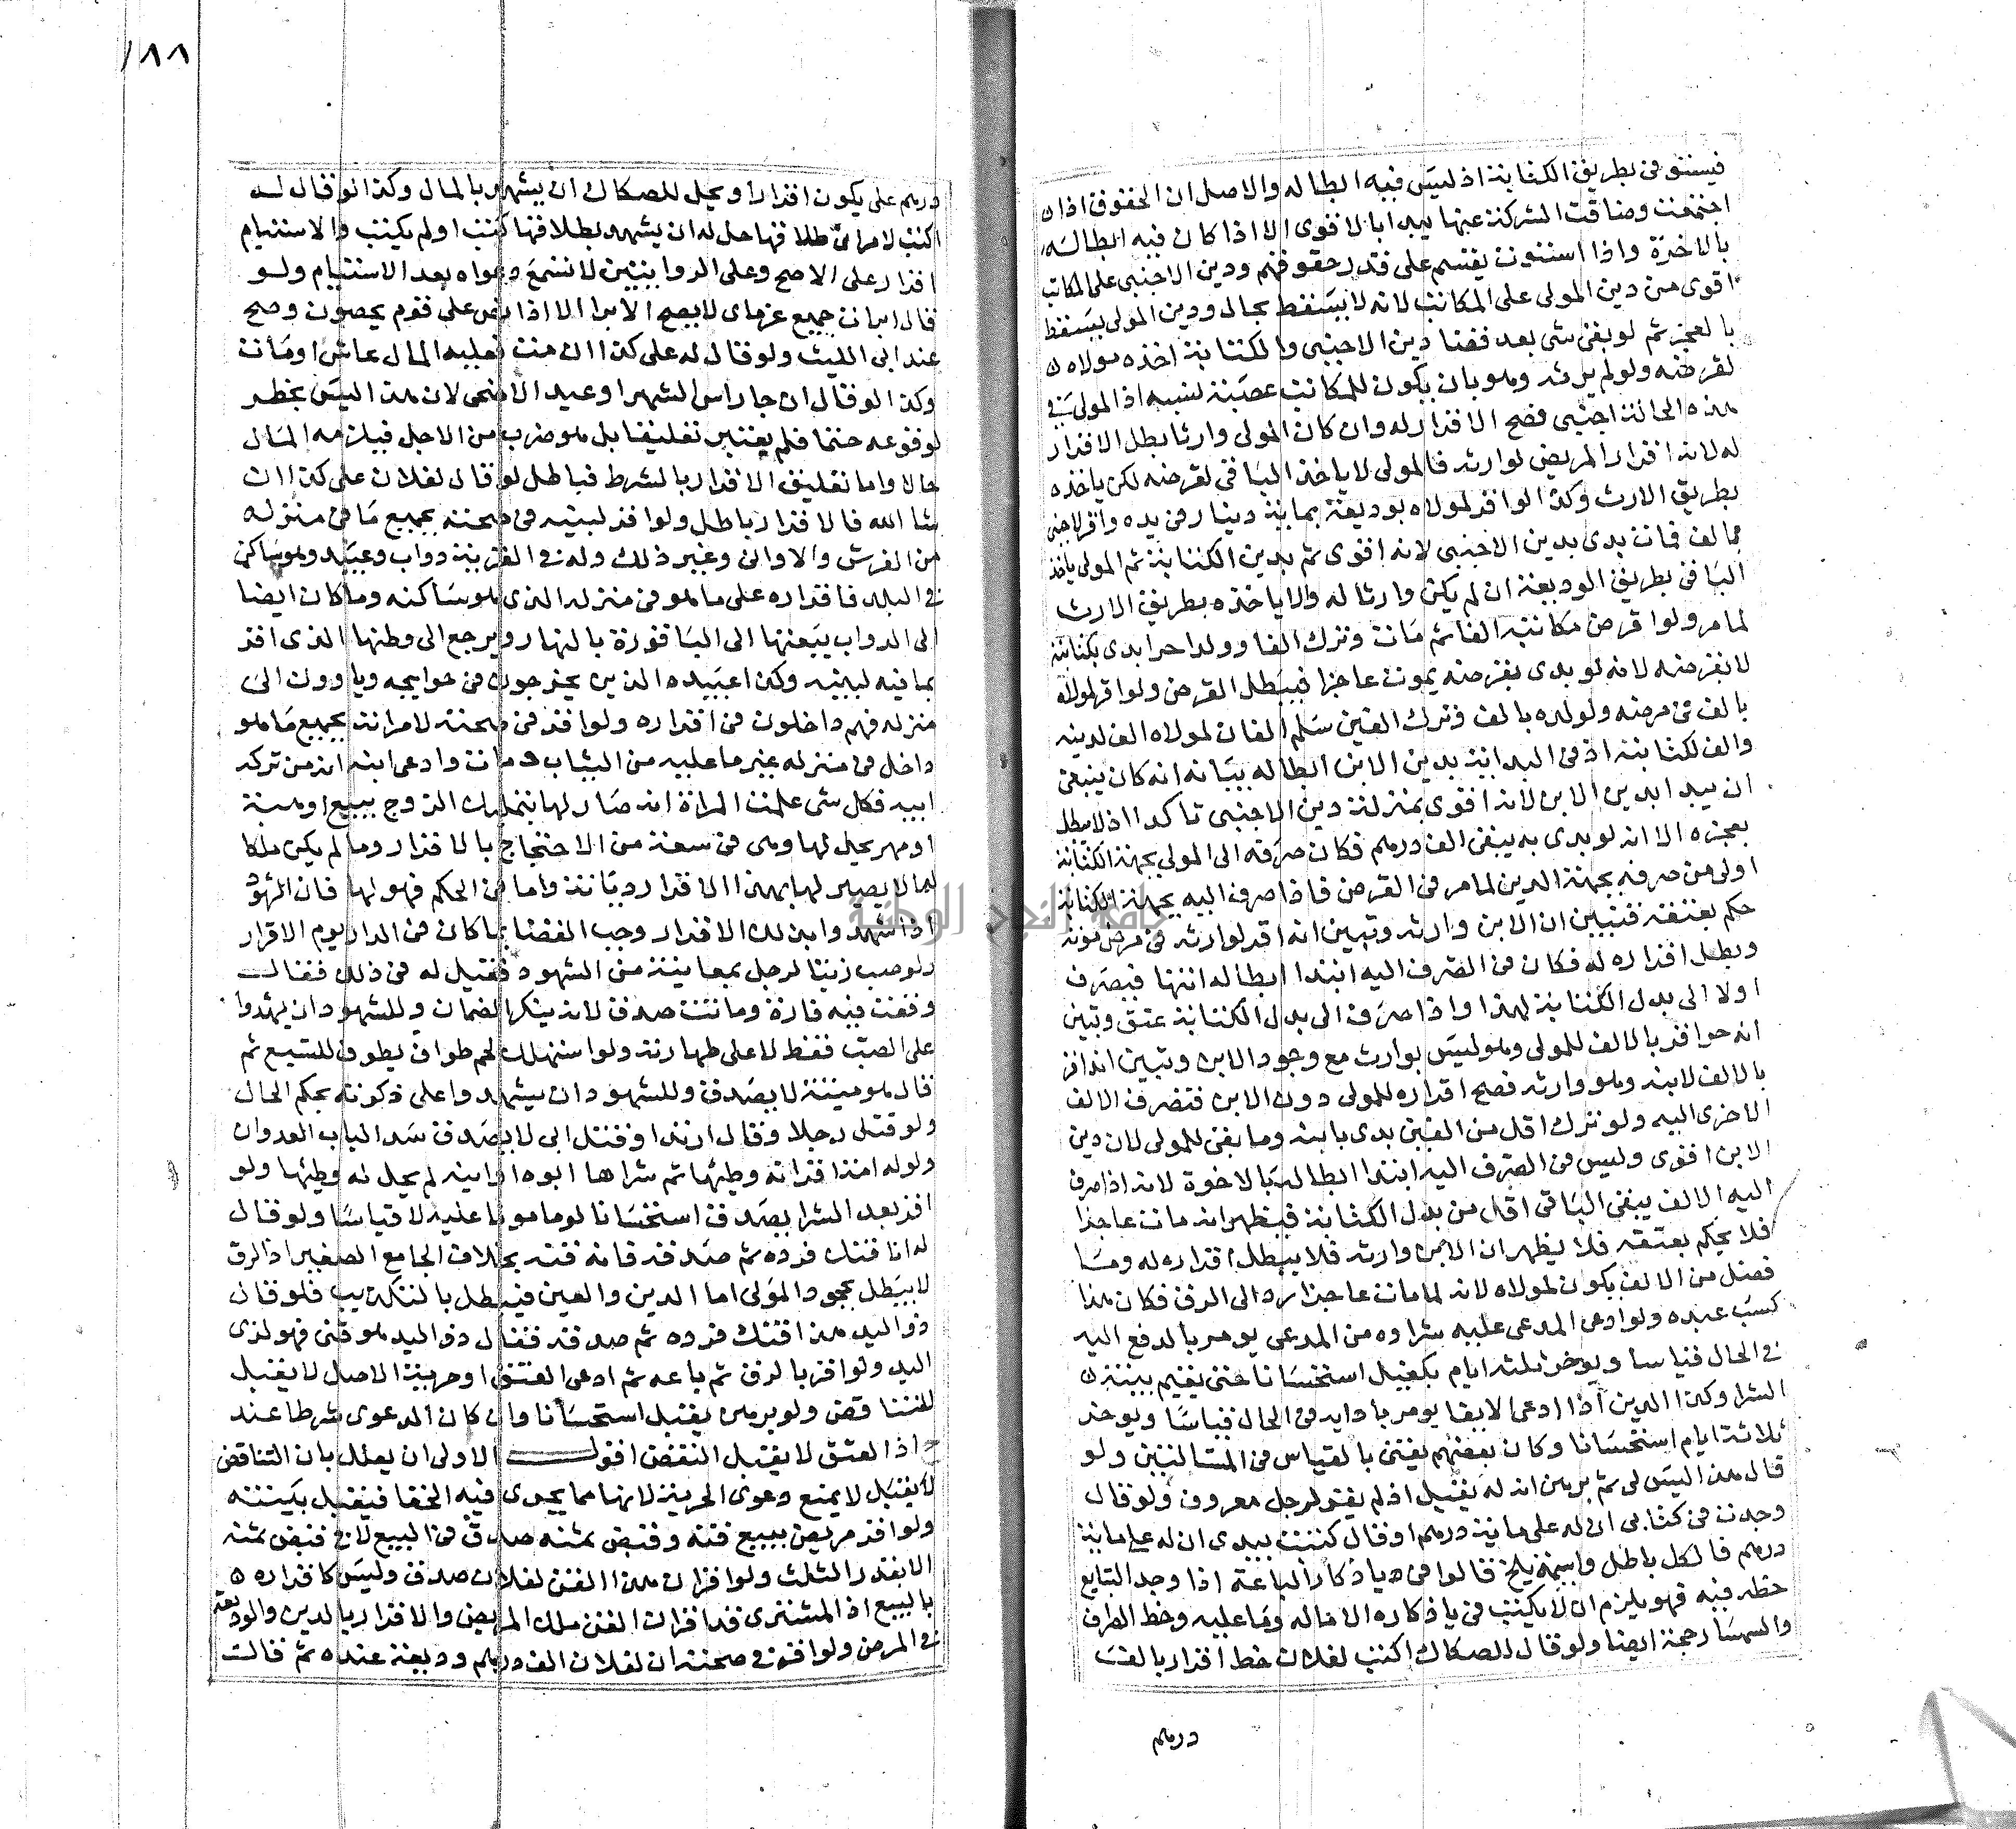 فيستوفى بطريق الكتابة اذ ليس فيه ابطاله والاصل ان الحقوق اذا
اجتمعت وضاقت التركة عنها يبدا بالاقوى الا اذا كان فيه ابطاله
بالاخرة واذا استوت يقسم على قدر حقوقهم ودين الاجنبى على المكاتب
اقوى من دين المولى على المكاتب لانه لا يسقط بحال ودين المولى يسقط
بالعجز ثم لو بقى شى بعد قضا دين الاجنبى والمكتابة اخذه مولاه
لقرضه ولو لم يرثه وهو بان يكون للمكاتب عصبة نسبه اذ المولى فى
هذه الحالة اجنبى فصح الاقرار له وان كان المولى وارثا بطل الاقرار
له لانه اقرار المريض لوارثه فالمولى لا ياخذ الباقى لقرضه لكن ياخذه
بطريق الارث وكذا لو اقر لمولاه بوديعة بماية دينار فى يده واقر لاجنبى
بمالف فمات بدى بدين الاجنبى لانه اقوى ثم بدين الكتابة ثم المولى ياخذ
الباقى بطريق الوديعة ان لم يكن وارثا له والا ياخذه بطريق الارث
لما مر ولو اقرض مكاتبه الفا ثم مات وترك الفا وولدا حرا بدى بكتابته
لا بقرضه لانه لو بدى بقرضه يموت عاجزا فيبطل القرض ولو اقر لمولاه
بالف فى مرضه ولولده بالف وترك الفين سلم الفان لمولاه الف لدينه
والف لكتابته اذ فى البداية بدين الابن ابطاله بيانه انه كان ينبغى
ان يبدا بدين الابن لانه اقوى بمنزلة دين الاجنبى تاكدا اذ لا يبطل
بعجزه الا انه لو بدى به يبقى الف درهم فكان صرفه الى المولى بجهة الكتابة
اولى من صرفه بجهة الدين لما مر فى القرض فاذا صرف اليه بجهة الكتابة
حكم بعتقه فتبين ان الابن وارثه وتبين انه اقر لوارثه فى مرض موته
وبطل اقراره له فكان فى الصرف اليه ابتدا ابطاله انتها فيصرف
اولا الى بدل الكتابة لهذا واذا صرف الى بدل الكتابة عتق وتبين
انه حر اقر بالالف للمولى وهو ليس بوارث مع وجود الابن وتبين انه اقر
بالالف لابنه وهو وارثه فصح اقراره للمولى دون الابن فتصرف الالف
الاخرى اليه ولو ترك اقل من الفين بدى بابنه وما بقى للمولى لان دين
الابن اقوى وليس فى الصرف اليه ابتدا ابطاله بالاخرة لانه اذا صرف
اليه الالف يبقى الباقى اقل من بدل الكتابة فيظهر انه مات عاجزا
فلا يحكم بعتقه فلا يظهر ان الابن وارثه فلا يبطل اقراره له وما
فضل من الالف يكون لمولاه لانه لما مات عاجزا رد الى الرق فكان هذا
كسب عبده ولو ادعى المدعى عليه شراه من المدعى يومر بالدفع اليه
فى الحال قياسا ويوخر ثلثة ايام بكفيل استحسانا حتى يقيم بينته
الشرا وكذا الدين اذا ادعى الايفا يومر بادايه فى الحال قياسا ويوخر
ثلاثة ايام استحسانا وكان بعضهم يفتى بالقياس فى المسالتين ولو
قال هذا ليس لى ثم برهن انه له يقبل اذ لم يقر لرجل معروف ولو قال
وجدت فى كتابى ان له على ماية درهم او قال كتبت بيدى ان له على ماية
درهم فالكل باطل وايمة بلخ قالوا فى ياذكار الباعة اذا وجد التابع
خطه فيه فهو يلزم ان لا يكتب فى ياذكاره الا ما له وما عليه وخط الصراف
والسمسار حجة ايضا ولو قال للصكاك اكتب لفلان خط اقرار بالف
درهم
١٨٨
درهم على يكون اقرارا ويحل للصكاك ان يشهد بالمال وكذا لو قال له
اكتب لامراتى طلاقها حل له ان يشهد بطلاقها كتب او لم يكتب والاستيام
اقرار على الاصح وعلى الروايتين لا تسمع دعواه بعد الاستيام ولو
قال ابرات جميع غرماى لا يصح الابرا الا اذا نص على قوم يحصون وصح
عند ابى الليث ولو قال له على كذا ان مت فعليه المال عاش او مات
وكذا لو قال ان جا راس الشهر او عيد الاضحى لان هذا ليس بخطر
لوقوعه حتما فلم يعتبر تعليقا بل هو ضرب من الاجل فيلزمه المال
حالا واما تعليق الاقرار بالشرط فباطل لو قال لفلان على كذا ان
شا الله فالاقرار باطل ولو اقر لبنته فى صحته بجميع ما فى منزله
من الفرش والاوانى وغير ذلك وله فى القرية دواب وعبيد وهو ساكن
فى البلد فاقراره على ما هو فى منزله الذى هو ساكنه وما كان ايضا
الى الدواب يبعثها الى الباقورة بالنهار ويرجع الى وطنها الذى اقر
بما فيه لبنته وكذا عبيده الذين يخرجون فى حوايجه وياوون الى
منزله فهم داخلون فى اقراره ولو اقر فى صحته لامراته بجميع ما هو
داخل فى منزله غير ما عليه من الثياب ومات وادعى ابنه انه من تركة
ابيه فكل شى علمت المراة انه صار لها بتمليك الزوج ببيع او هبة
او مهر يحل لها وهى فى سعة من الاحتجاج بالاقرار وما لم يكن ملكا
لها لا يصير لها بهذا الاقرار ديانة واما فى الحكم فهو لها فان الشهود
اذا شهدوا بذلك الاقرار وجب القضا بما كان فى الدار يوم الاقرار
ولو صب زيتا لرجل بمعاينة من الشهود فقيل له فى ذلك فقال
وقعت فيه فارة وماتت صدق لانه ينكر الضمان وللشهود ان يشهدوا
على الصب فقط لا على طهارته ولو استهلك لحم طواف يطوف للبيع ثم
قال هو ميتة لا يصدق وللشهود ان يشهدوا على ذكوته بحكم الحال
ولو قتل رجلا وقال ارتد او قتل ابى لا يصدق سدا لباب العدوان
ولو له امة اقر انه وطيها ثم شراها ابوه او ابنه لم يحل له وطيها ولو
اقر بعد الشرا يصدق استحسانا لو مامونا عليه لا قياسا ولو قال
له انا قنك فرده ثم صدقه فانه قنه بخلاف الجامع الصغير اذ الرق
لا يبطل بجحود المولى اما الدين والعين فيبطل بالتكذيب فلو قال
ذو اليد هذا قنك فرده ثم صدقه فقال ذو اليد هو قنى فهو لذى
اليد ولو اقر بالرق ثم باعه ثم ادعى العتق او حرية الاصل لا يقبل
للتناقض ولو برهن يقبل استحسانا وان كان الدعوى شرطا عند
ح اذ العتق لا يقبل النقض اقول الاولى ان يعلل بان التناقض
لا يقبل لا يمنع دعوى الحرية لانها مما يجرى فيه الخفا فيقبل بينته
ولو اقر مريض ببيع قنه وقبض ثمنه صدق فى البيع لا فى قبض ثمنه
الا بقدر الثلث ولو اقر ان هذا القن لفلان صدق وليس كاقراره
بالبيع اذ المشترى قد اقر ان القن ملك المريض والاقرار بالدين والوديعة
فى المرض ولو اقر فى صحته ان لفلان الف درهم وديعة عنده ثم قالت